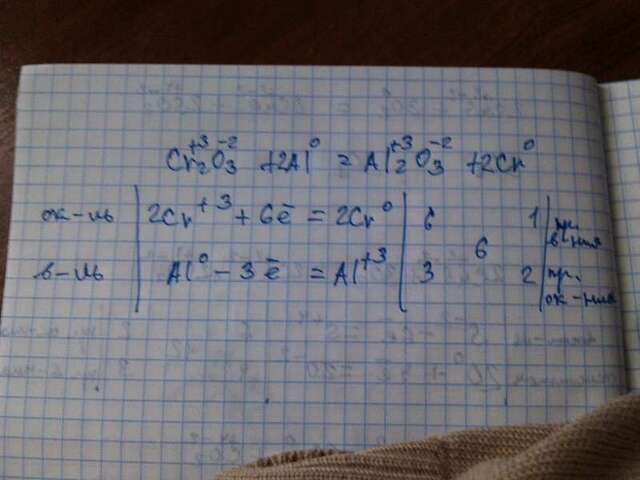 Cr₂⁺³O₃⁻² + 2Al⁰ = Al₂⁺³O₃⁻² + 2Cr⁰
ок-ль | 2Cr⁺³ + 6ē = 2Cr⁰ | 6 1 | пр. в-ния
6
в-ль | Al⁰ - 3ē = Al⁺³ | 3 2 | пр. ок-ния